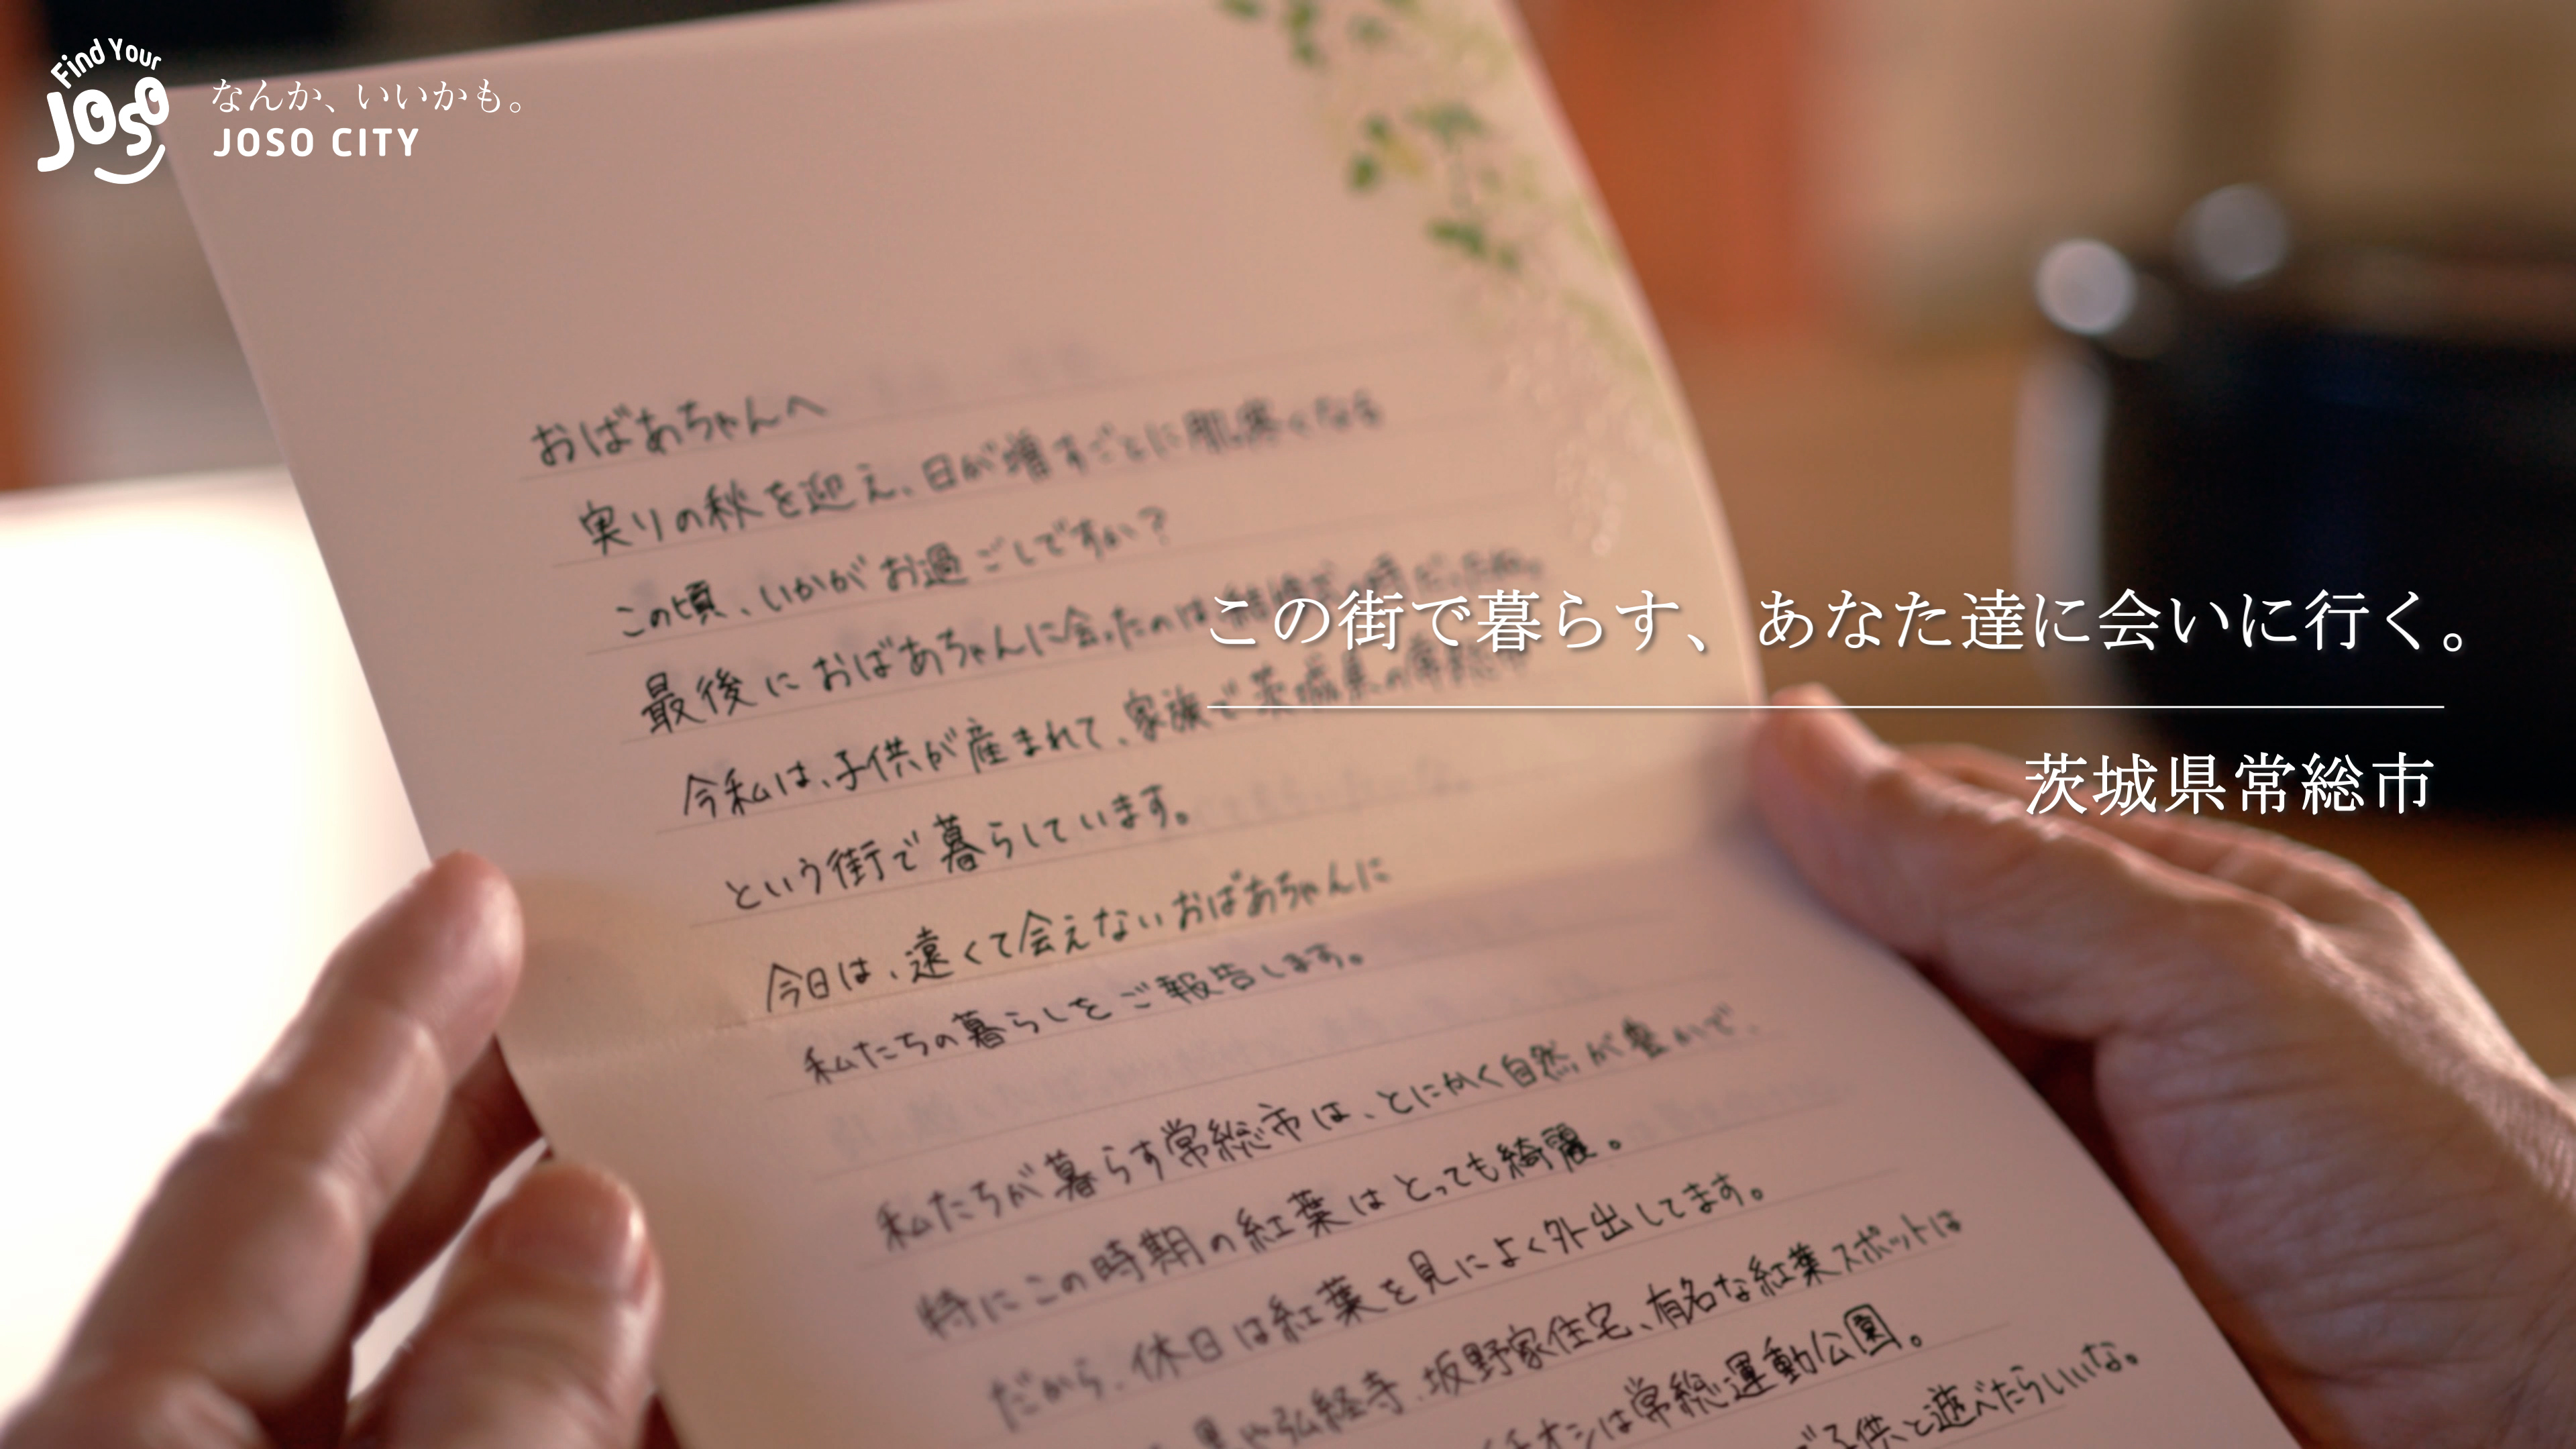 Find Your
JOSO
なんか、いいかも。
JOSO CITY
おばあちゃんへ
実りの秋を迎え、日が増すごとに肌寒くなる
この頃、いかがお過ごしですか？
最後におばあちゃんに会ったのは
この街で暮らす、あなた達に会いに行く。
今私は、子供が産まれて、家族で茨城県の常総市
茨城県常総市
という街で暮らしています。
今日は、遠くて会えないおばあちゃんに
私たちの暮らしをご報告します。
私たちが暮らす常総市は、とにかく自然が豊かで、
特にこの時期の紅葉はとっても綺麗。
だから、休日は紅葉を見によく外出してます。
弘経寺、坂野家住宅、有名な紅葉スポットは
チオシは常総運動公園。
で子供と遊べたらいいな。